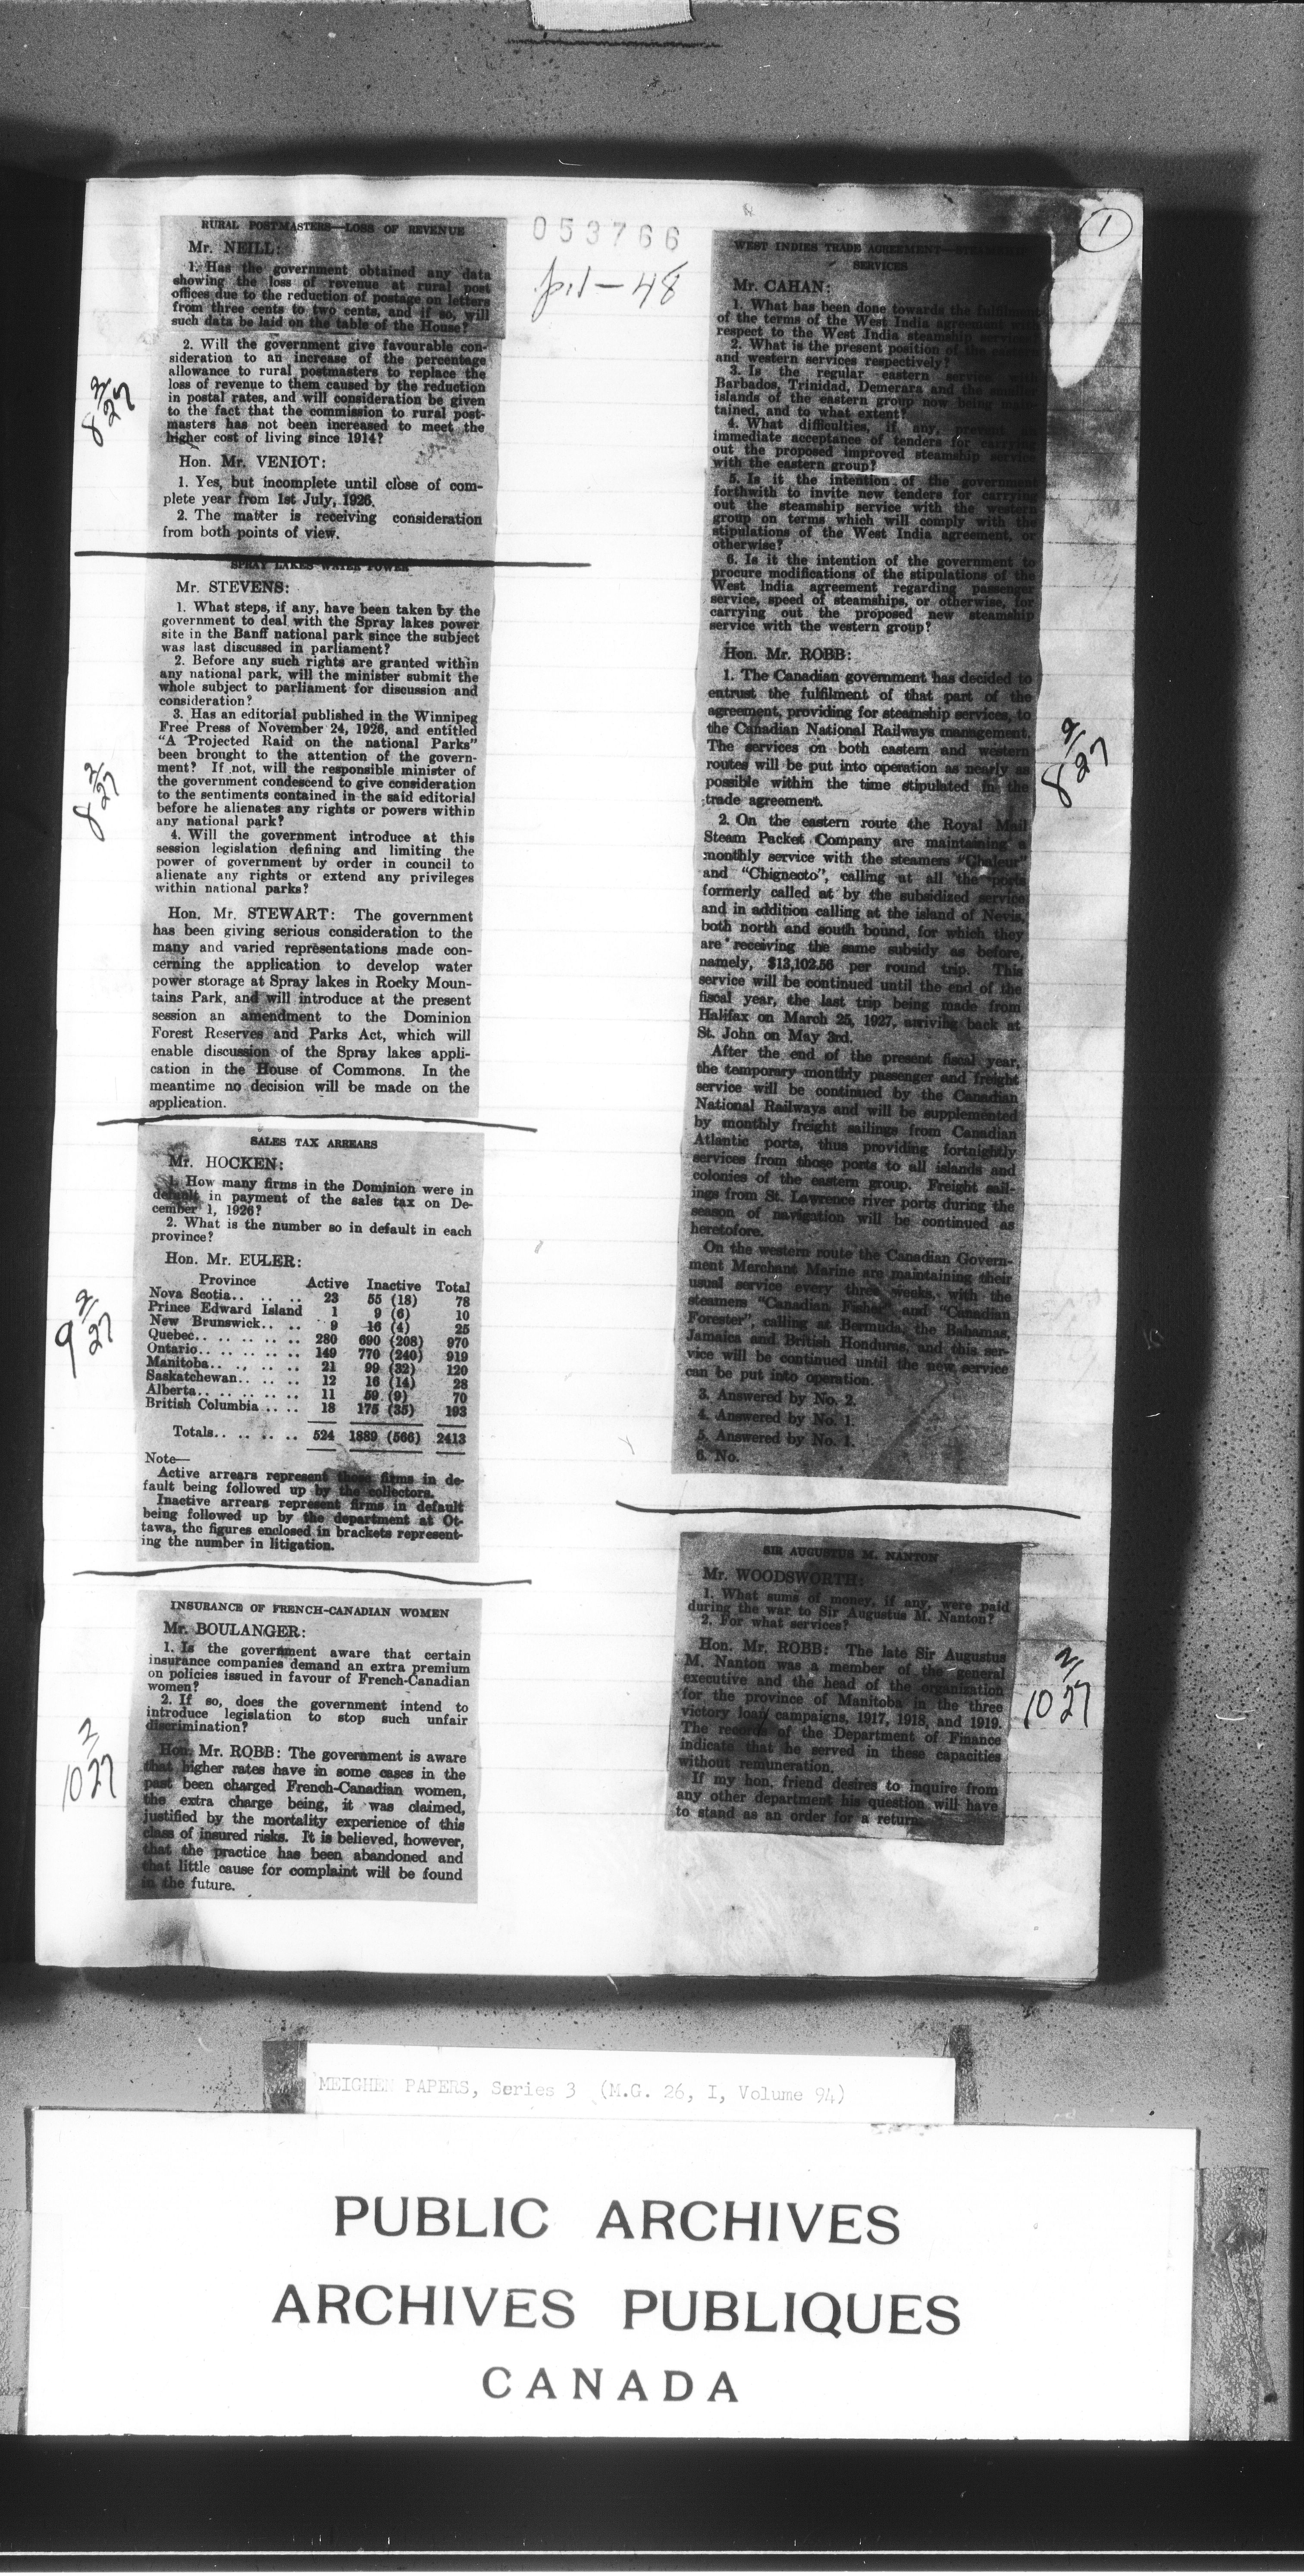 053766
pil-48
1
RURAL POSTMASTERS—LOSS OF REVENUE
Mr. NEILL:
1. Has the government obtained any data
showing the loss of revenue at rural post
offices due to the reduction of postage on letters
from three cents to two cents, and if so, will
such data be laid on the table of the House?
2. Will the government give favourable con-
sideration to an increase of the percentage
allowance to rural postmasters to replace the
loss of revenue to them caused by the reduction
in postal rates, and will consideration be given
to the fact that the commission to rural post-
masters has not been increased to meet the
higher cost of living since 1914?
Hon. Mr. VENIOT:
1. Yes, but incomplete until close of com-
plete year from 1st July, 1926.
2. The matter is receiving consideration
from both points of view.
8 2/27
SPRAY LAKES WATER POWER
Mr. STEVENS:
1. What steps, if any, have been taken by the
government to deal with the Spray lakes power
site in the Banff national park since the subject
was last discussed in parliament?
2. Before any such rights are granted within
any national park, will the minister submit the
whole subject to parliament for discussion and
consideration?
3. Has an editorial published in the Winnipeg
Free Press of November 24, 1926, and entitled
"A Projected Raid on the national Parks"
been brought to the attention of the govern-
ment? If not, will the responsible minister of
the government condescend to give consideration
to the sentiments contained in the said editorial
before he alienates any rights or powers within
any national park?
4. Will the government introduce at this
session legislation defining and limiting the
power of government by order in council to
alienate any rights or extend any privileges
within national parks?
Hon. Mr. STEWART: The government
has been giving serious consideration to the
many and varied representations made con-
cerning the application to develop water
power storage at Spray lakes in Rocky Moun-
tains Park, and will introduce at the present
session an amendment to the Dominion
Forest Reserves and Parks Act, which will
enable discussion of the Spray lakes appli-
cation in the House of Commons. In the
meantime no decision will be made on the
application.
8 2/27
SALES TAX ARREARS
Mr. HOCKEN:
1. How many firms in the Dominion were in
default in payment of the sales tax on De-
cember 1, 1926?
2. What is the number so in default in each
province?
Hon. Mr. EULER:
Province Active Inactive Total
Nova Scotia.. .. .. 23 55 (18) 78
Prince Edward Island 1 9 (6) 10
New Brunswick.. .. 9 16 (4) 25
Quebec.. .. .. .. .. 280 690 (208) 970
Ontario.. .. .. .. .. 149 770 (240) 919
Manitoba.. .. .. .. 21 99 (32) 120
Saskatchewan.. .. .. 12 16 (14) 28
Alberta.. .. .. .. .. 11 59 (9) 70
British Columbia .. .. 18 175 (35) 193
Totals.. .. .. .. 524 1889 (566) 2413
Note—
Active arrears represent those firms in de-
fault being followed up by the collectors.
Inactive arrears represent firms in default
being followed up by the department at Ot-
tawa, the figures enclosed in brackets represent-
ing the number in litigation.
9 2/27
INSURANCE OF FRENCH-CANADIAN WOMEN
Mr. BOULANGER:
1. Is the government aware that certain
insurance companies demand an extra premium
on policies issued in favour of French-Canadian
women?
2. If so, does the government intend to
introduce legislation to stop such unfair
discrimination?
Hon. Mr. ROBB: The government is aware
that higher rates have in some cases in the
past been charged French-Canadian women,
the extra charge being, it was claimed,
justified by the mortality experience of this
class of insured risks. It is believed, however,
that the practice has been abandoned and
that little cause for complaint will be found
in the future.
10 2/27
WEST INDIES TRADE AGREEMENT—STEAMSHIP
SERVICES
Mr. CAHAN:
1. What has been done towards the fulfilment
of the terms of the West India agreement with
respect to the West India steamship services?
2. What is the present position of the eastern
and western services respectively?
3. Is the regular eastern service with
Barbados, Trinidad, Demerara and the smaller
islands of the eastern group now being main-
tained, and to what extent?
4. What difficulties, if any, prevent an
immediate acceptance of tenders for carrying
out the proposed improved steamship service
with the eastern group?
5. Is it the intention of the government
forthwith to invite new tenders for carrying
out the steamship service with the western
group on terms which will comply with the
stipulations of the West India agreement, or
otherwise?
6. Is it the intention of the government to
procure modifications of the stipulations of the
West India agreement regarding passenger
service, speed of steamships, or otherwise, for
carrying out the proposed new steamship
service with the western group?
Hon. Mr. ROBB:
1. The Canadian government has decided to
entrust the fulfilment of that part of the
agreement, providing for steamship services, to
the Canadian National Railways management.
The services on both eastern and western
routes will be put into operation as nearly as
possible within the time stipulated in the
trade agreement.
2. On the eastern route the Royal Mail
Steam Packet Company are maintaining a
monthly service with the steamers "Chaleur"
and "Chignecto", calling at all the ports
formerly called at by the subsidized service
and in addition calling at the island of Nevis,
both north and south bound, for which they
are receiving the same subsidy as before,
namely, $13,102.56 per round trip. This
service will be continued until the end of the
fiscal year, the last trip being made from
Halifax on March 25, 1927, arriving back at
St. John on May 3rd.
After the end of the present fiscal year,
the temporary monthly passenger and freight
service will be continued by the Canadian
National Railways and will be supplemented
by monthly freight sailings from Canadian
Atlantic ports, thus providing fortnightly
services from those ports to all islands and
colonies of the eastern group. Freight sail-
ings from St. Lawrence river ports during the
season of navigation will be continued as
heretofore.
On the western route the Canadian Govern-
ment Merchant Marine are maintaining their
usual service every three weeks, with the
steamers "Canadian Fisher" and "Canadian
Forester", calling at Bermuda, the Bahamas,
Jamaica and British Honduras, and this ser-
vice will be continued until the new service
can be put into operation.
3. Answered by No. 2.
4. Answered by No. 1.
5. Answered by No. 1.
6. No.
8 2/27
SIR AUGUSTUS M. NANTON
Mr. WOODSWORTH:
1. What sums of money, if any, were paid
during the war to Sir Augustus M. Nanton?
2. For what services?
Hon. Mr. ROBB: The late Sir Augustus
M. Nanton was a member of the general
executive and the head of the organization
for the province of Manitoba in the three
victory loan campaigns, 1917, 1918, and 1919.
The records of the Department of Finance
indicate that he served in these capacities
without remuneration.
If my hon. friend desires to inquire from
any other department his question will have
to stand as an order for a return.
10 2/27
MEIGHEN PAPERS, Series 3 (M.G. 26, I, Volume 94)
PUBLIC ARCHIVES
ARCHIVES PUBLIQUES
CANADA